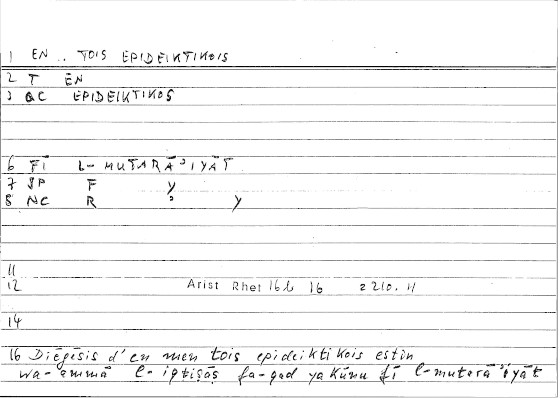 1 EN .. TOIS EPIDEIKTIKOIS
2 T EN
3 QC EPIDEIKTIKOS
6 FĪ L-MUTARĀʾIYĀT
7 SP F Y
8 NC R ʾ Y
11
12 Arist Rhet 16b 16 2210.11
14
16 Diēgēsis d'en men tois epideiktikois estin
wa-ammā l-iqtiṣāṣ fa-qad yakūnu fī l-mutarāʾiyāt